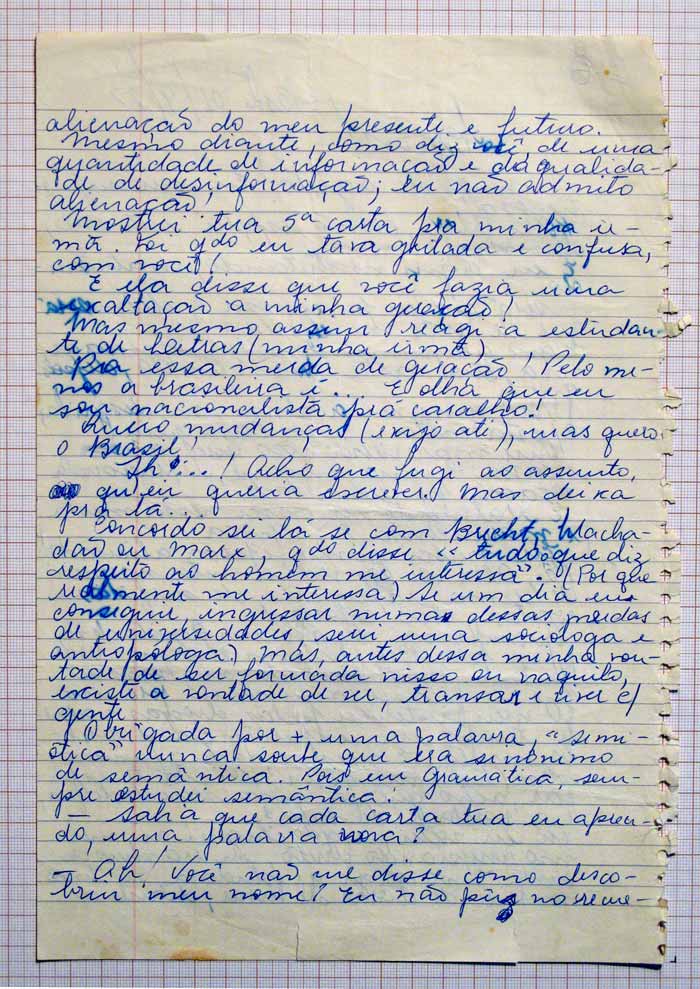 alienação do meu presente e futuro.
Mesmo diante, como diz você de uma
quantidade de informação e da qualida-
de de desinformação; eu não admito
alienação!
Mostrei tua 5ª carta pra minha ir-
mã. Foi qdo eu tava grilada e confusa,
com você!
E ela disse que você fazia uma
exaltação a minha geração!
Mas mesmo assim reagi a estudan-
te de Letras (minha irmã)
Pra essa merda de geração! Pelo me-
nos a brasileira é... E olha que eu
sou nacionalista prá caralho!
Quero mudanças (exijo até), mas quero
o Brasil!
Ih...! Acho que fugi ao assunto,
qu'eu queria escrever. Mas deixa
pra lá...
Concordo sei lá se com Brecht, Macha-
dão ou Marx, qdo disse "tudo que diz
respeito ao homem me interessa". (Por que
realmente me interessa) Se um dia eu
conseguir ingressar numa dessas merdas
de universidades, serei uma sociologa e
antropologa) Mas, antes dessa minha von-
tade de ser formada nisso ou naquilo,
existe a vontade de ser, transar e viver c/
gente
Obrigada por + uma palavra, "semi-
ótica" nunca soube que era sinônimo
de semântica. Pois em Gramática, sem-
pre estudei semântica!
— Sabia que cada carta tua eu apren-
do, uma palavra nova?
— Ah! Você não me disse como desco-
briu meu nome! Eu não pus no reme-